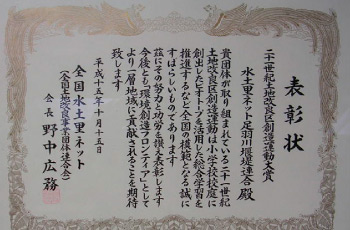 表彰状
二十一世紀土地改良区創造運動大賞
水土里ネット足羽川堰堤連合殿
貴団体が取り組まれている二十一世紀
土地改良区創造運動は小学校校庭に
創出したビオトープを活用した総合学習を
推進するなど全国の模範となる誠に
すばらしいものであります
茲にその努力と功労を讃え表彰します
今後とも「環境創造フロンティア」として
より一層地域に貢献されることを期待
致します
平成十五年十月十五日
全国水土里ネット
(全国土地改良事業団体連合会)
会長 野中広務